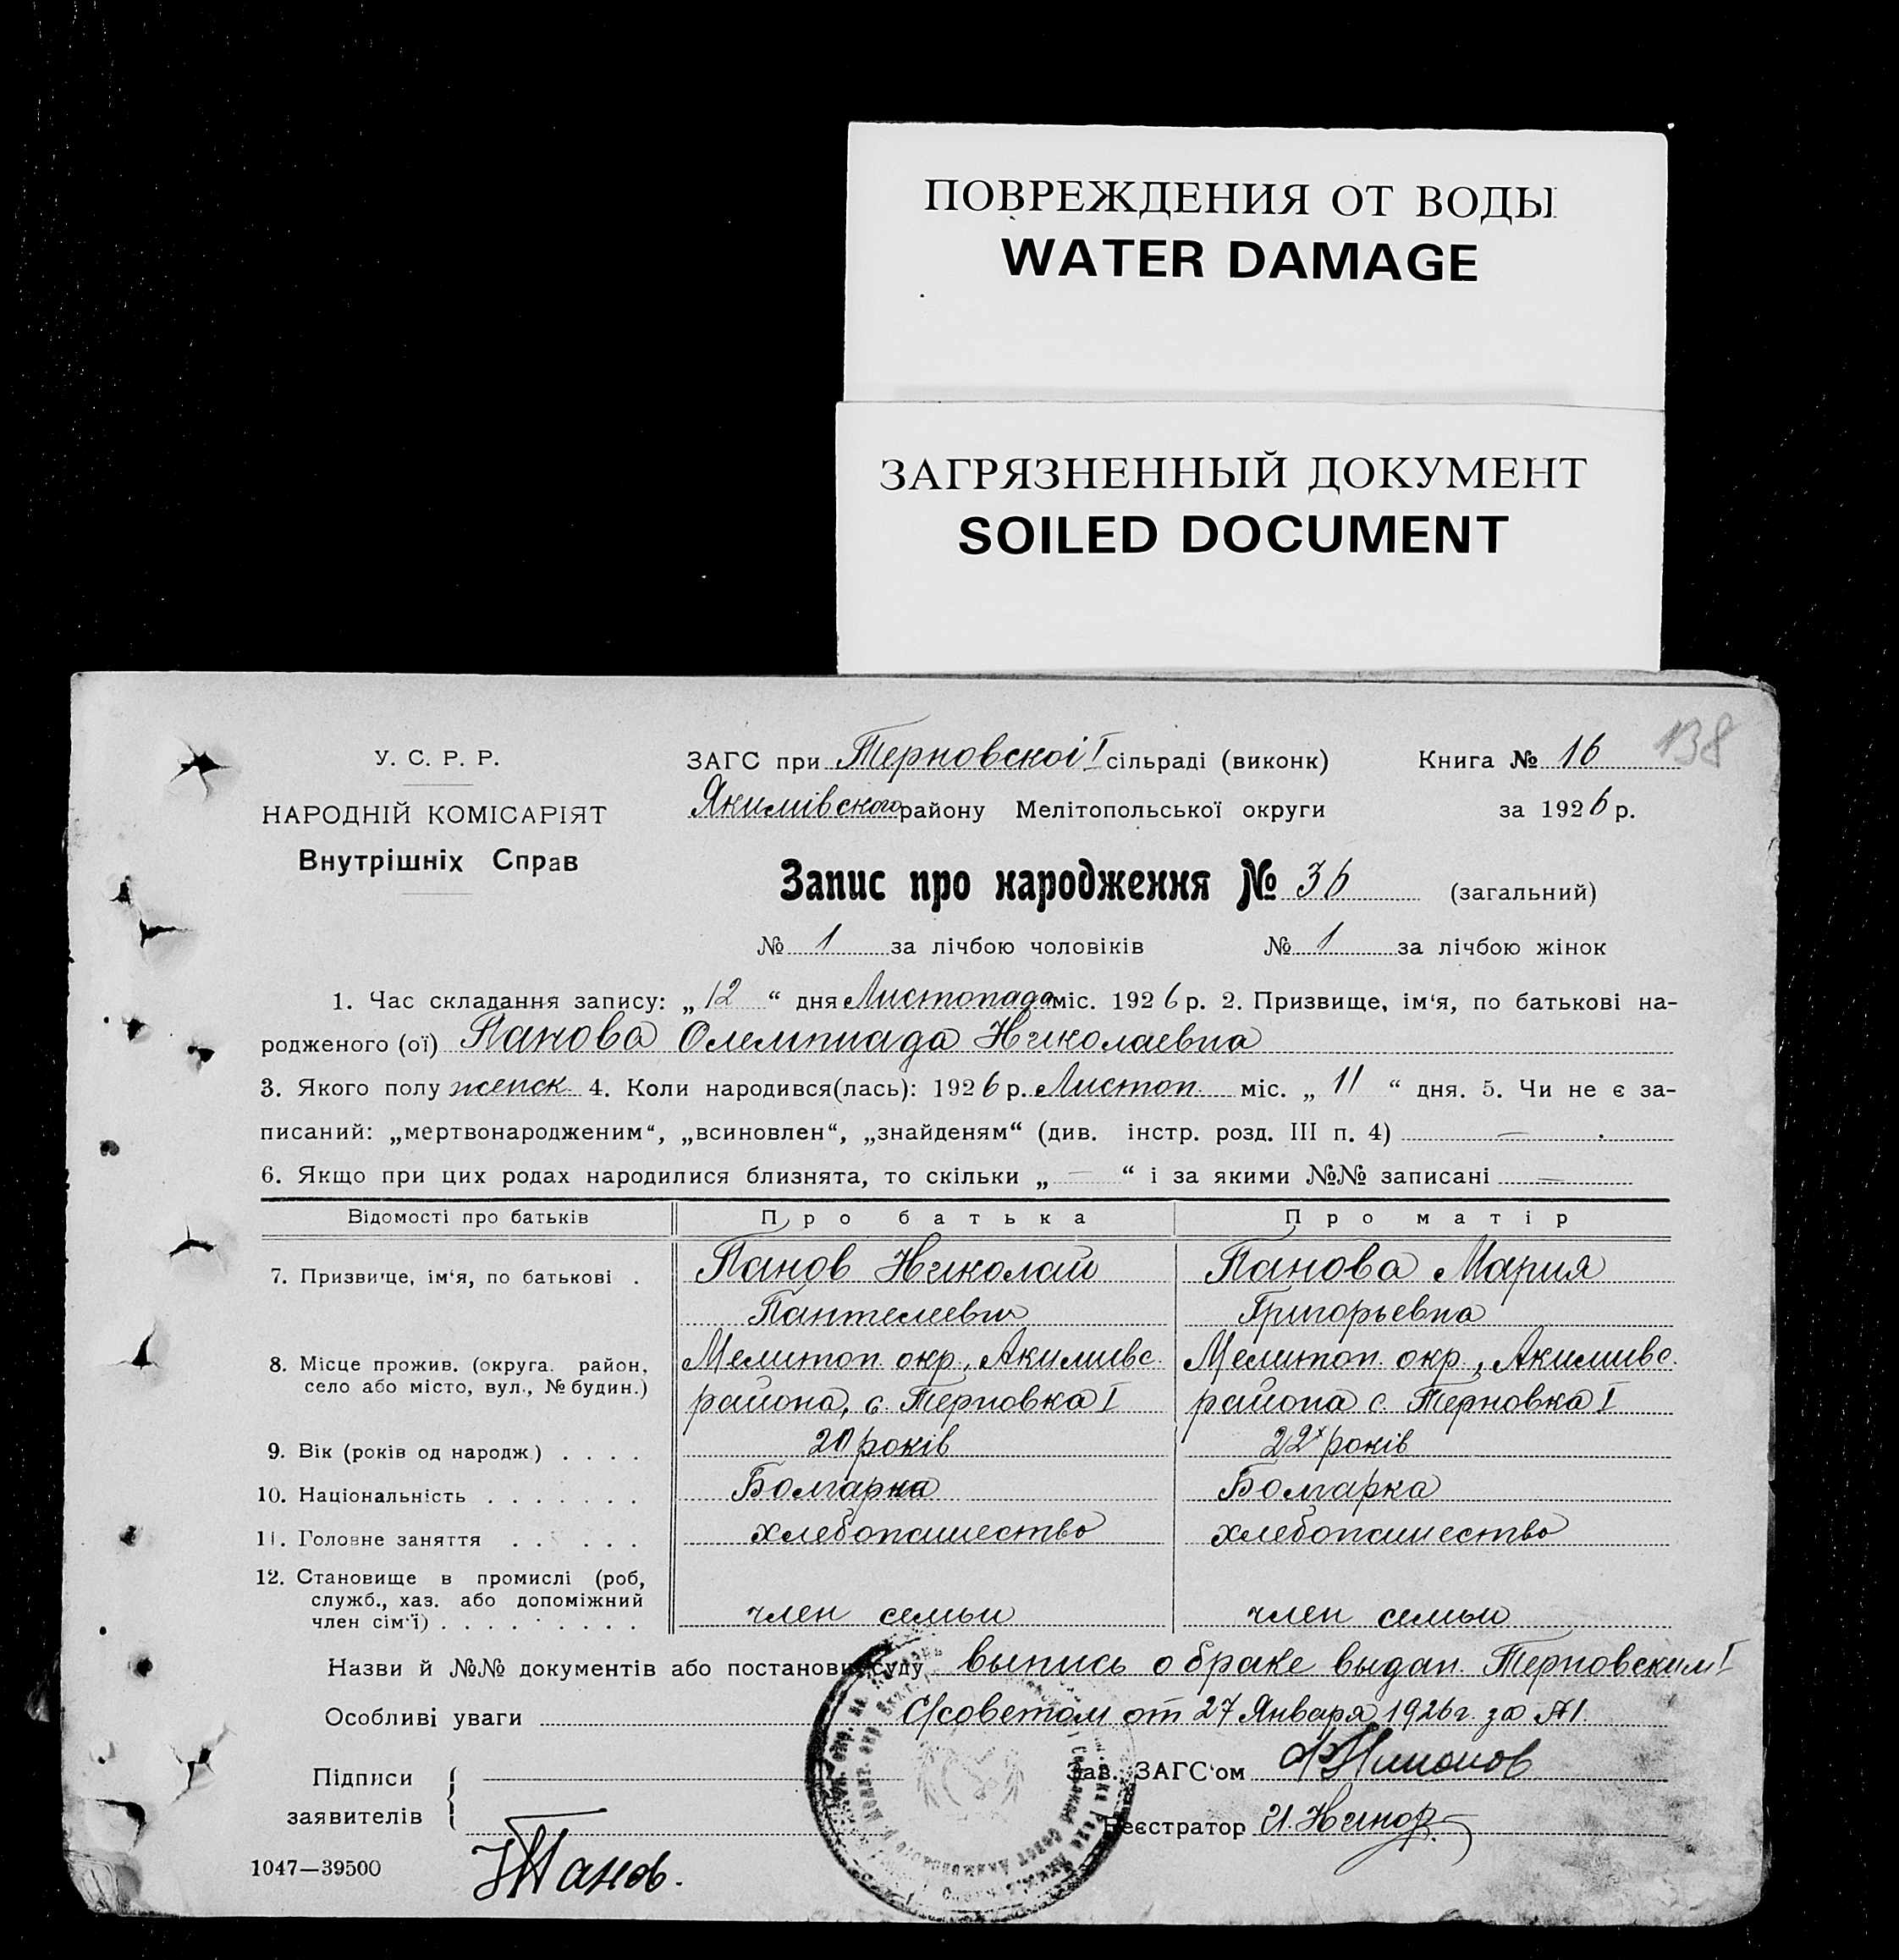 ПОВРЕЖДЕНИЯ ОТ ВОДЫ
WATER DAMAGE
ЗАГРЯЗНЕННЫЙ ДОКУМЕНТ
SOILED DOCUMENT
138
У. С. Р. Р.
НАРОДНІЙ КОМІСАРІЯТ
Внутрішніх Справ
ЗАГС при Терновскоі I сільраді (виконк) Книга № 16
Якимівского району Мелітопольської округи за 1926 р.
Запис про народження № 36 (загальний)
№ 1 за лічбою чоловіків № 1 за лічбою жінок
1. Час складання запису: „12“ дня Листопада міс. 1926 р. 2. Призвище, ім‘я, по батькові на-
родженого (ої) Панова Олемпиада Николаевна
3. Якого полу женск. 4. Коли народився(лась): 1926 р. Листоп. міс. „11“ дня. 5. Чи не є за-
писаний: „мертвонародженим“, „всиновлен“, „знайденям“ (див. інстр. розд. III п. 4) —
6. Якщо при цих родах народилися близнята, то скільки „—“ і за якими №№ записані —
Відомості про батьків Про батька Про матір
7. Призвище, ім‘я, по батькові . Панов Николай Панова Мария
Пантелеевич Григорьевна
8. Місце прожив. (округа. район, Мелитоп. окр., Акимивс. Мелитоп. окр., Акимивс.
село або місто, вул., № будин.) района, с. Терновка I района с. Терновка I
9. Вік (років од народж) . . . . 20 років 22х років
10. Національність . . . . . . . Болгарка Болгарка
11. Головне заняття . . . . . хлебопашество хлебопашество
12. Становище в промислі (роб,
служб., хаз. або допоміжний
член сім‘ї) . . . . . . . . член семьи член семьи
Назви й №№ документів або постанови суду выпись о браке выдан. Терновским I
Особливі уваги С/советом от 27 Января 1926 г. за №1.
Підписи
заявителів
Зав. ЗАГС‘ом
Реєстратор
1047—39500
Панов.